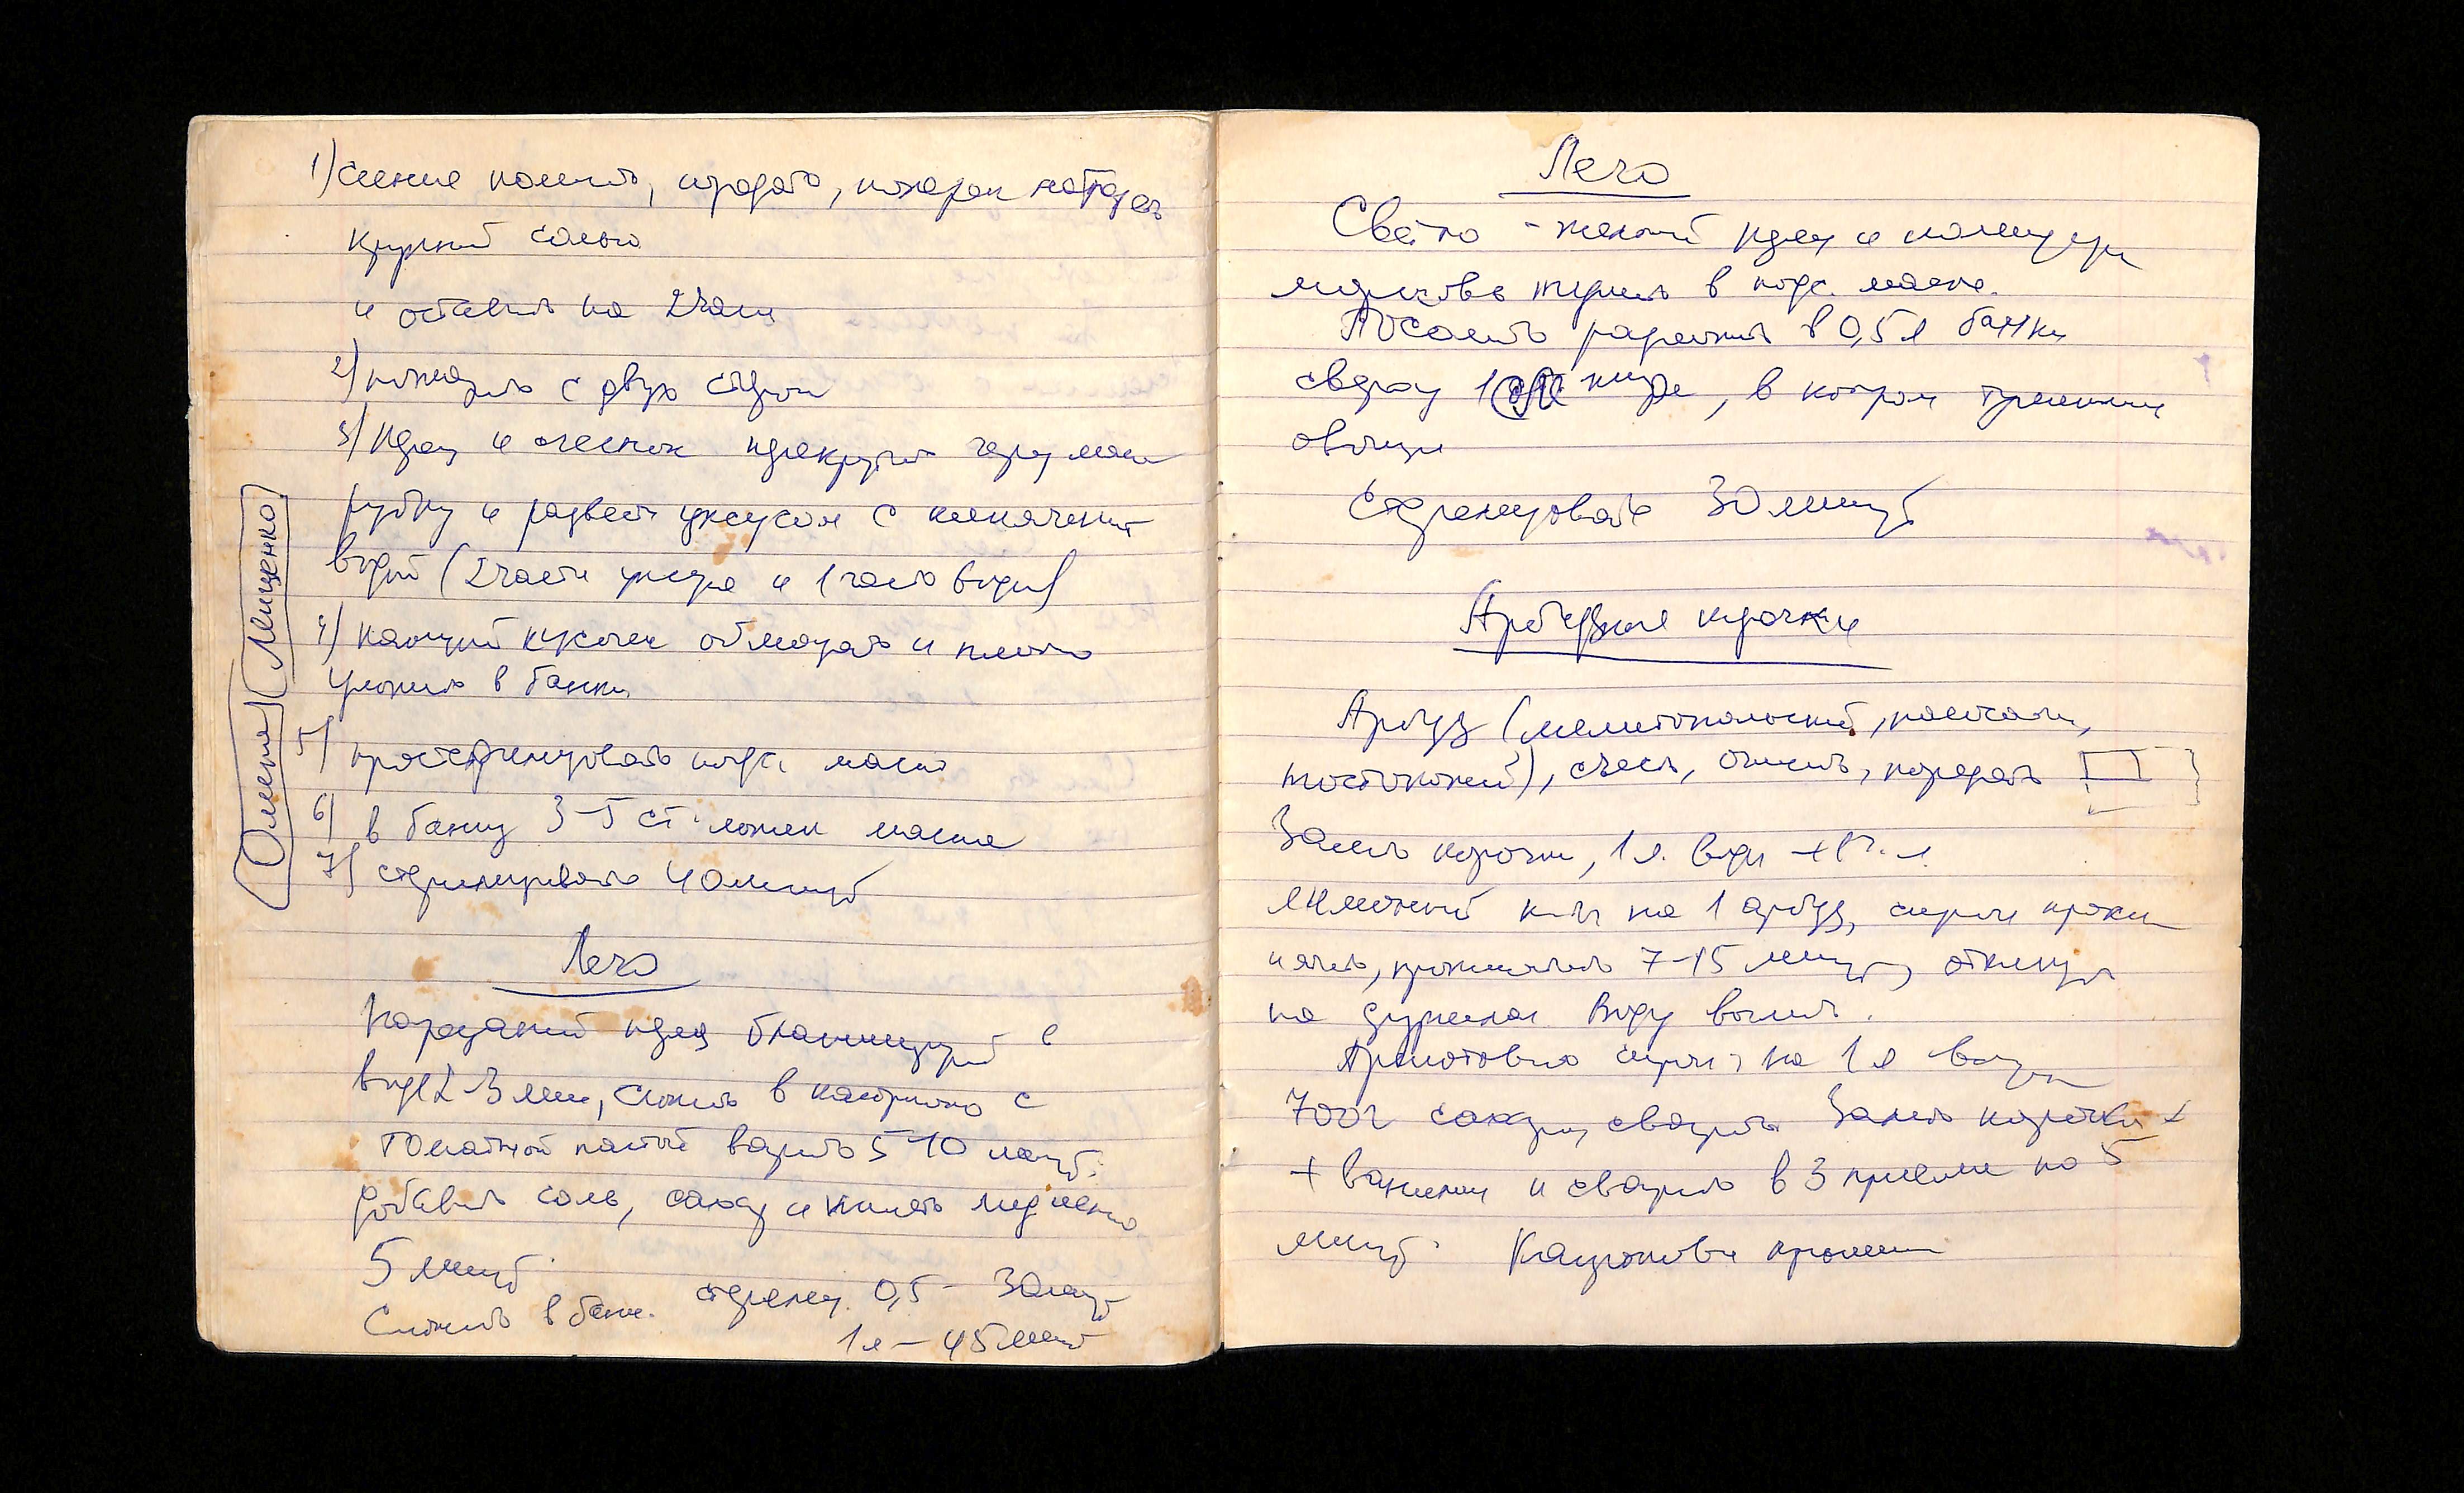 1) синие помыть, порезать, натереть
крупной солью
и оставить на 2 часа
2) пожарить с двух сторон
3) перец и чеснок перекрутить через мясо
рубку и развести уксусом с кипяченой
водой (2 части уксуса и 1 часть воды)
4) каждый кусочек обмакать и плотно
уложить в банки
5) простерилизовать подс. масло
6) в банку 3-5 ст. ложек масла
7) стерилизовать 40 минут
Оменя Лещенко
Лечо
Порезанный перец бланшируй в
воде 2-3 мин, сложить в кастрюлю с
томатной пастой варить 5-10 минут.
добавить соль, сахар и кипять медленно
5 минут.
Сложить в банк. стерилиз. 0,5 - 30 минут
1л - 45 минут
Лечо
Свето-желтый перец и помидоры
морковь тушить в подс. масле.
Посолить разложить в 0,5 л банки
сверху 1 ст. жира, в котором тушились
овощи
Стерилизовать 30 минут
Арбузные корочки
Арбуз (мелитопольский,
толстокожий), съесть, очистить, порезать
Залить корочки, 1 л. воды + 1 ч. л.
лимонной к-ты на 1 арбуз,
пятить, прокипятить 7-15 минут, откинуть
на друшлаг воду вылить.
Приготовить сироп: на 1 л воды
700г сахара, сварить. Залить корочки +
+ ванилин и сварить в 3 приема по 5
минут.